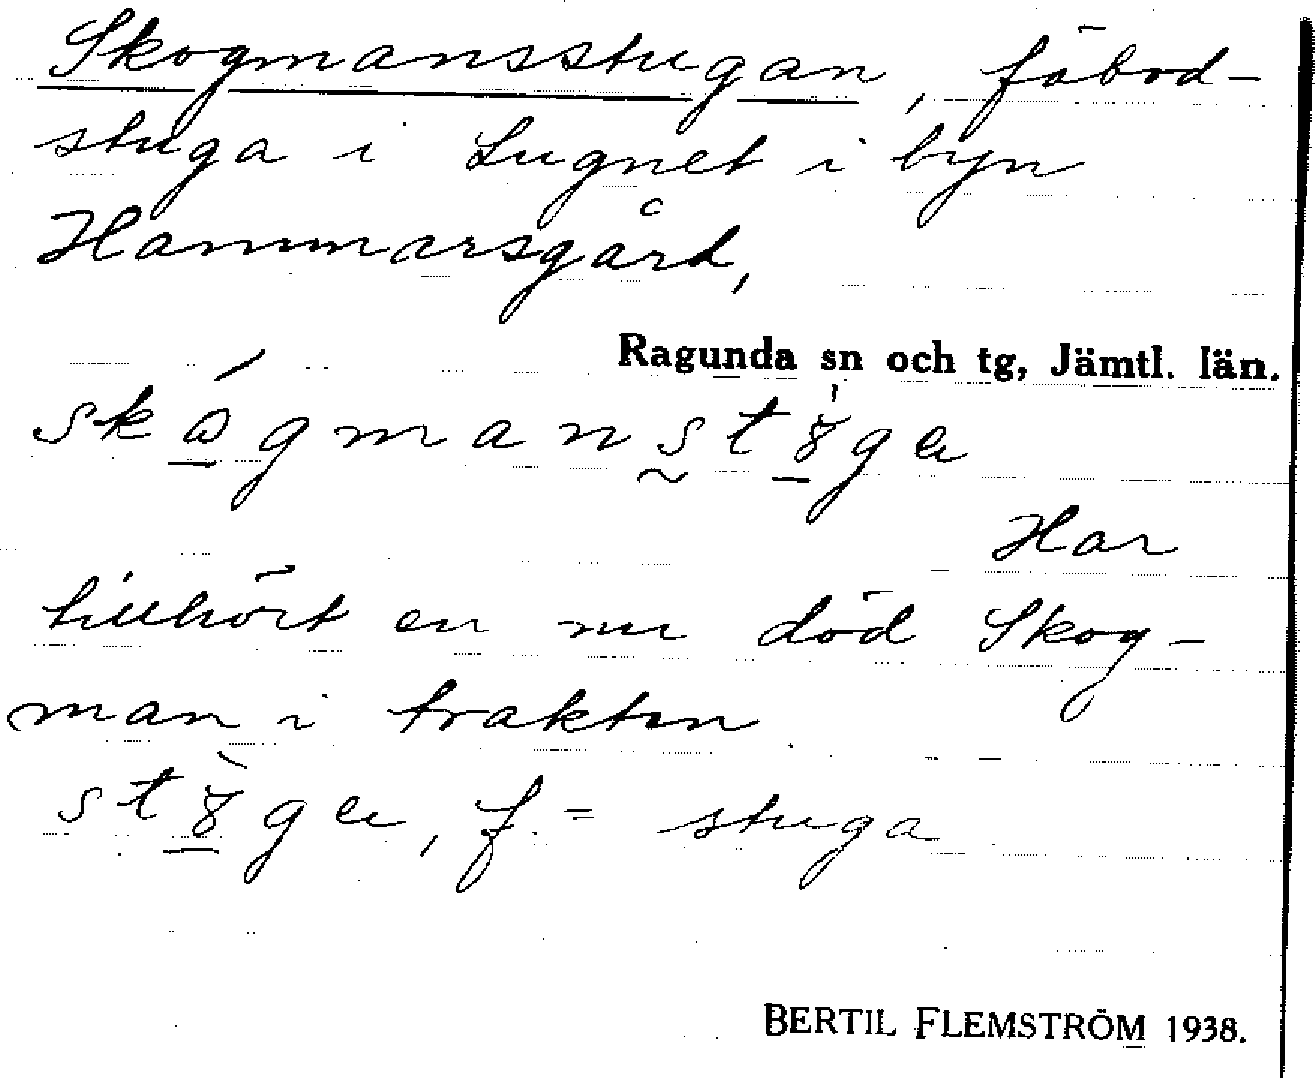 Skogmansstugan, fäbod-
stuga i Lugnet i byn
Hammarsgård,
Ragunda sn och tg, Jämtl. län.
Har
tillhört en nu död Skog-
man i trakten
f. = stuga
BERTIL FLEMSTRÖM 1938.